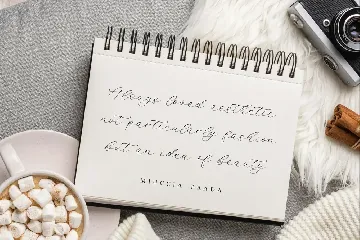 Always loved aesthetic
not particularly fashion,
but an idea of beauty